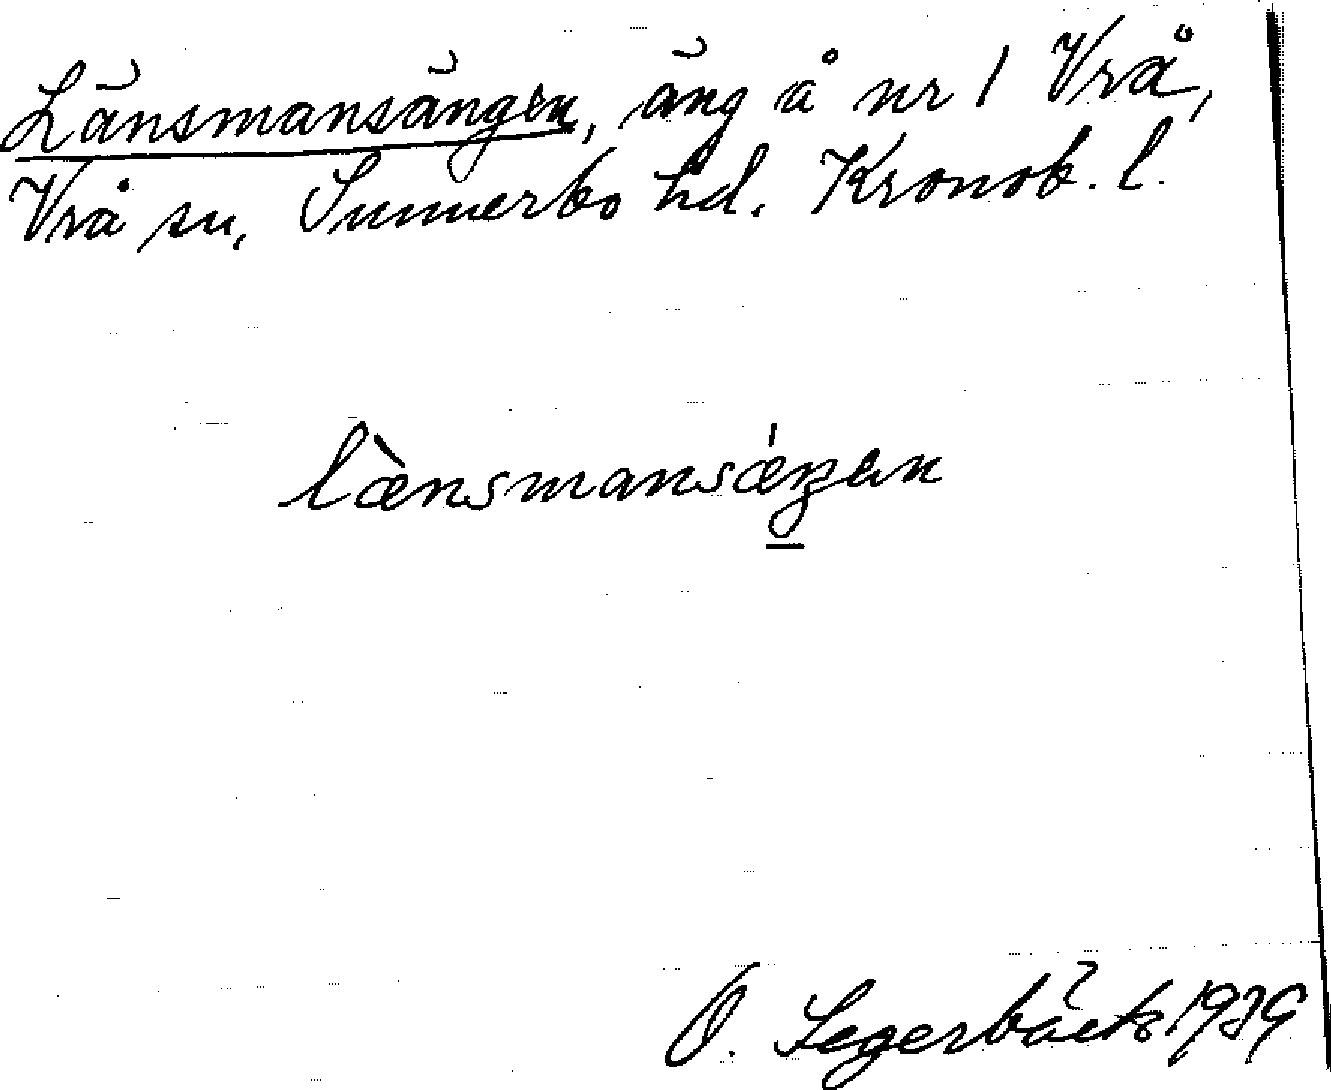 Länsmansängen, äng å nr 1 Vrå,
Vrå sn, Sunnerbo hd. Kronob. l.
lænsmansæŋen
O. Segerbäck 1939